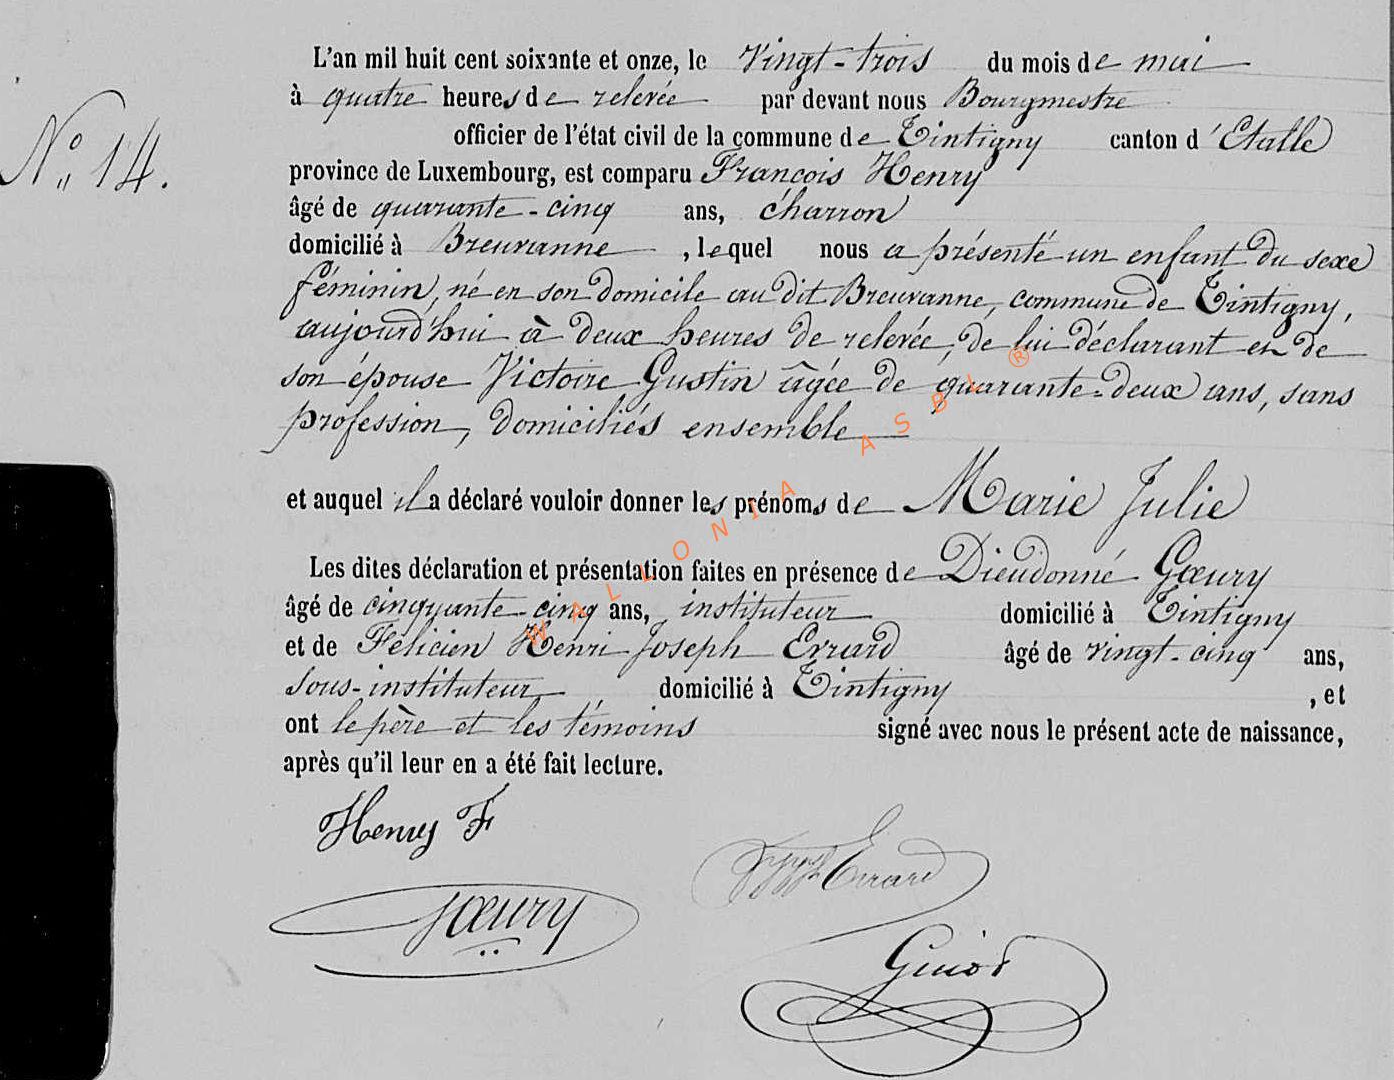 L'an mil huit cent soixante et onze, le vingt-trois du mois de mai
à quatre heures de relevée par devant nous Bourgmestre
officier de l'état civil de la commune de Tintigny canton d'Etalle
N° 14.
province de Luxembourg, est comparu François Henry
âgé de quarante-cinq ans, charron
domicilié à Breuvanne, lequel nous a présenté un enfant du sexe
féminin, né en son domicile au dit Breuvanne, commune de Tintigny,
aujourd'hui à deux heures de relevée, de lui déclarant et de
son épouse Victoire Gustin âgée de quarante-deux ans, sans
profession, domiciliés ensemble
et auquel il a déclaré vouloir donner les prénoms de Marie Julie
Les dites déclaration et présentation faites en présence de Dieudonné Gœury
âgé de cinquante-cinq ans, instituteur domicilié à Tintigny
et de Félicien Henri Joseph Errard âgé de vingt-cinq ans,
sous-instituteur domicilié à Tintigny, et
ont le père et les témoins signé avec nous le présent acte de naissance,
après qu'il leur en a été fait lecture.
Henry F
Errard
Gœury
WALLONIA ASBL ®